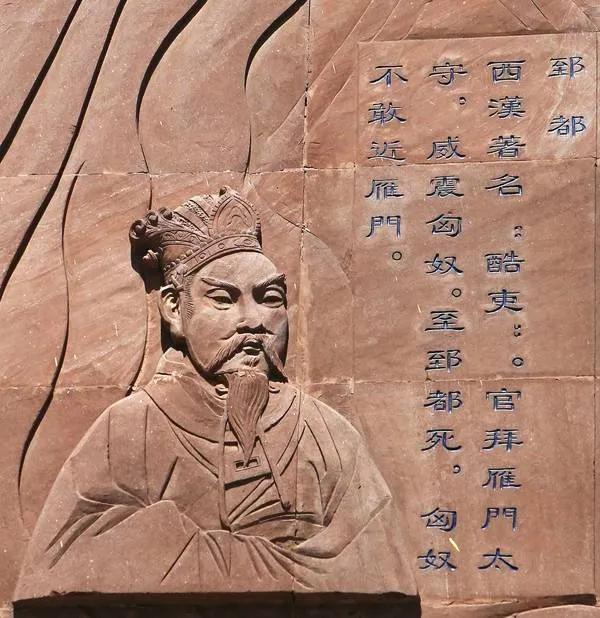 郅都
西漢著名“酷吏”。官拜雁門太
守，威震匈奴。至郅都死，匈奴
不敢近雁門。